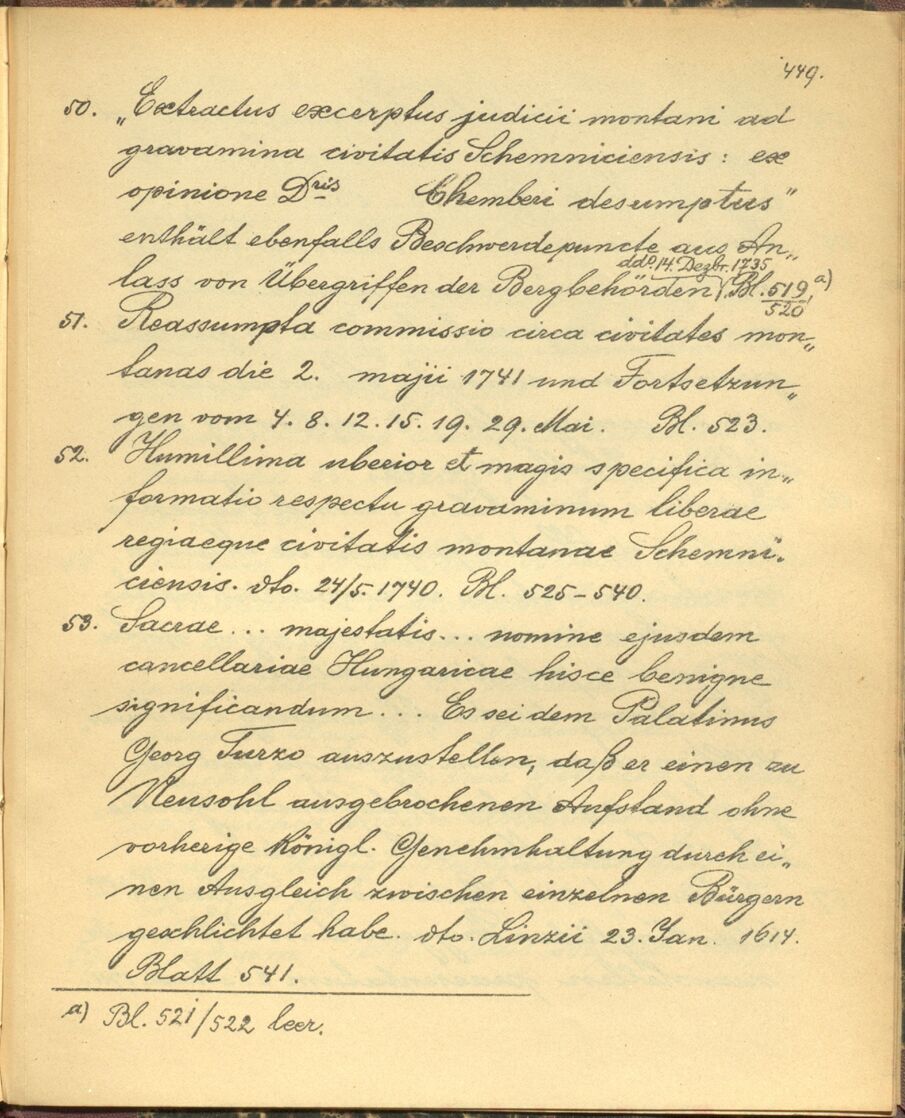 449.
50. „Extractus excerptus judicii montani ad
gravamina civitatis Schemniciensis: ex
opinione Dris Chemberi desumptus"
enthält ebenfalls Beschwerdepuncte aus An„
ddo. 14. Dezbr. 1735
lass von Übergriffen der Bergbehörden, Bl. 519/520, a)
51. Reassumpta commissio circa civitates mon„
tanas die 2. majii 1741 und Fortsetzun„
gen vom 4. 8. 12. 15. 19. 29. Mai. Bl. 523.
52. Humillima uberior et magis specifica in„
formatio respectu gravaminum liberae
regiaeque civitatis montanae Schemni„
ciensis. dto. 24/5. 1740. Bl. 525-540.
53. Sacrae... majestatis... nomine ejusdem
cancellariae Hungaricae hisce benigne
significandum... Es sei dem Palatinus
Georg Turzo auszustellen, daß er einen zu
Neusohl ausgebrochenen Aufstand ohne
vorherige königl. Genehmhaltung durch ei„
nen Ausgleich zwischen einzelnen Bürgern
geschlichtet habe. dto. Linzii 23. Jan. 1614.
Blatt 541.
a) Bl. 521/522 leer.